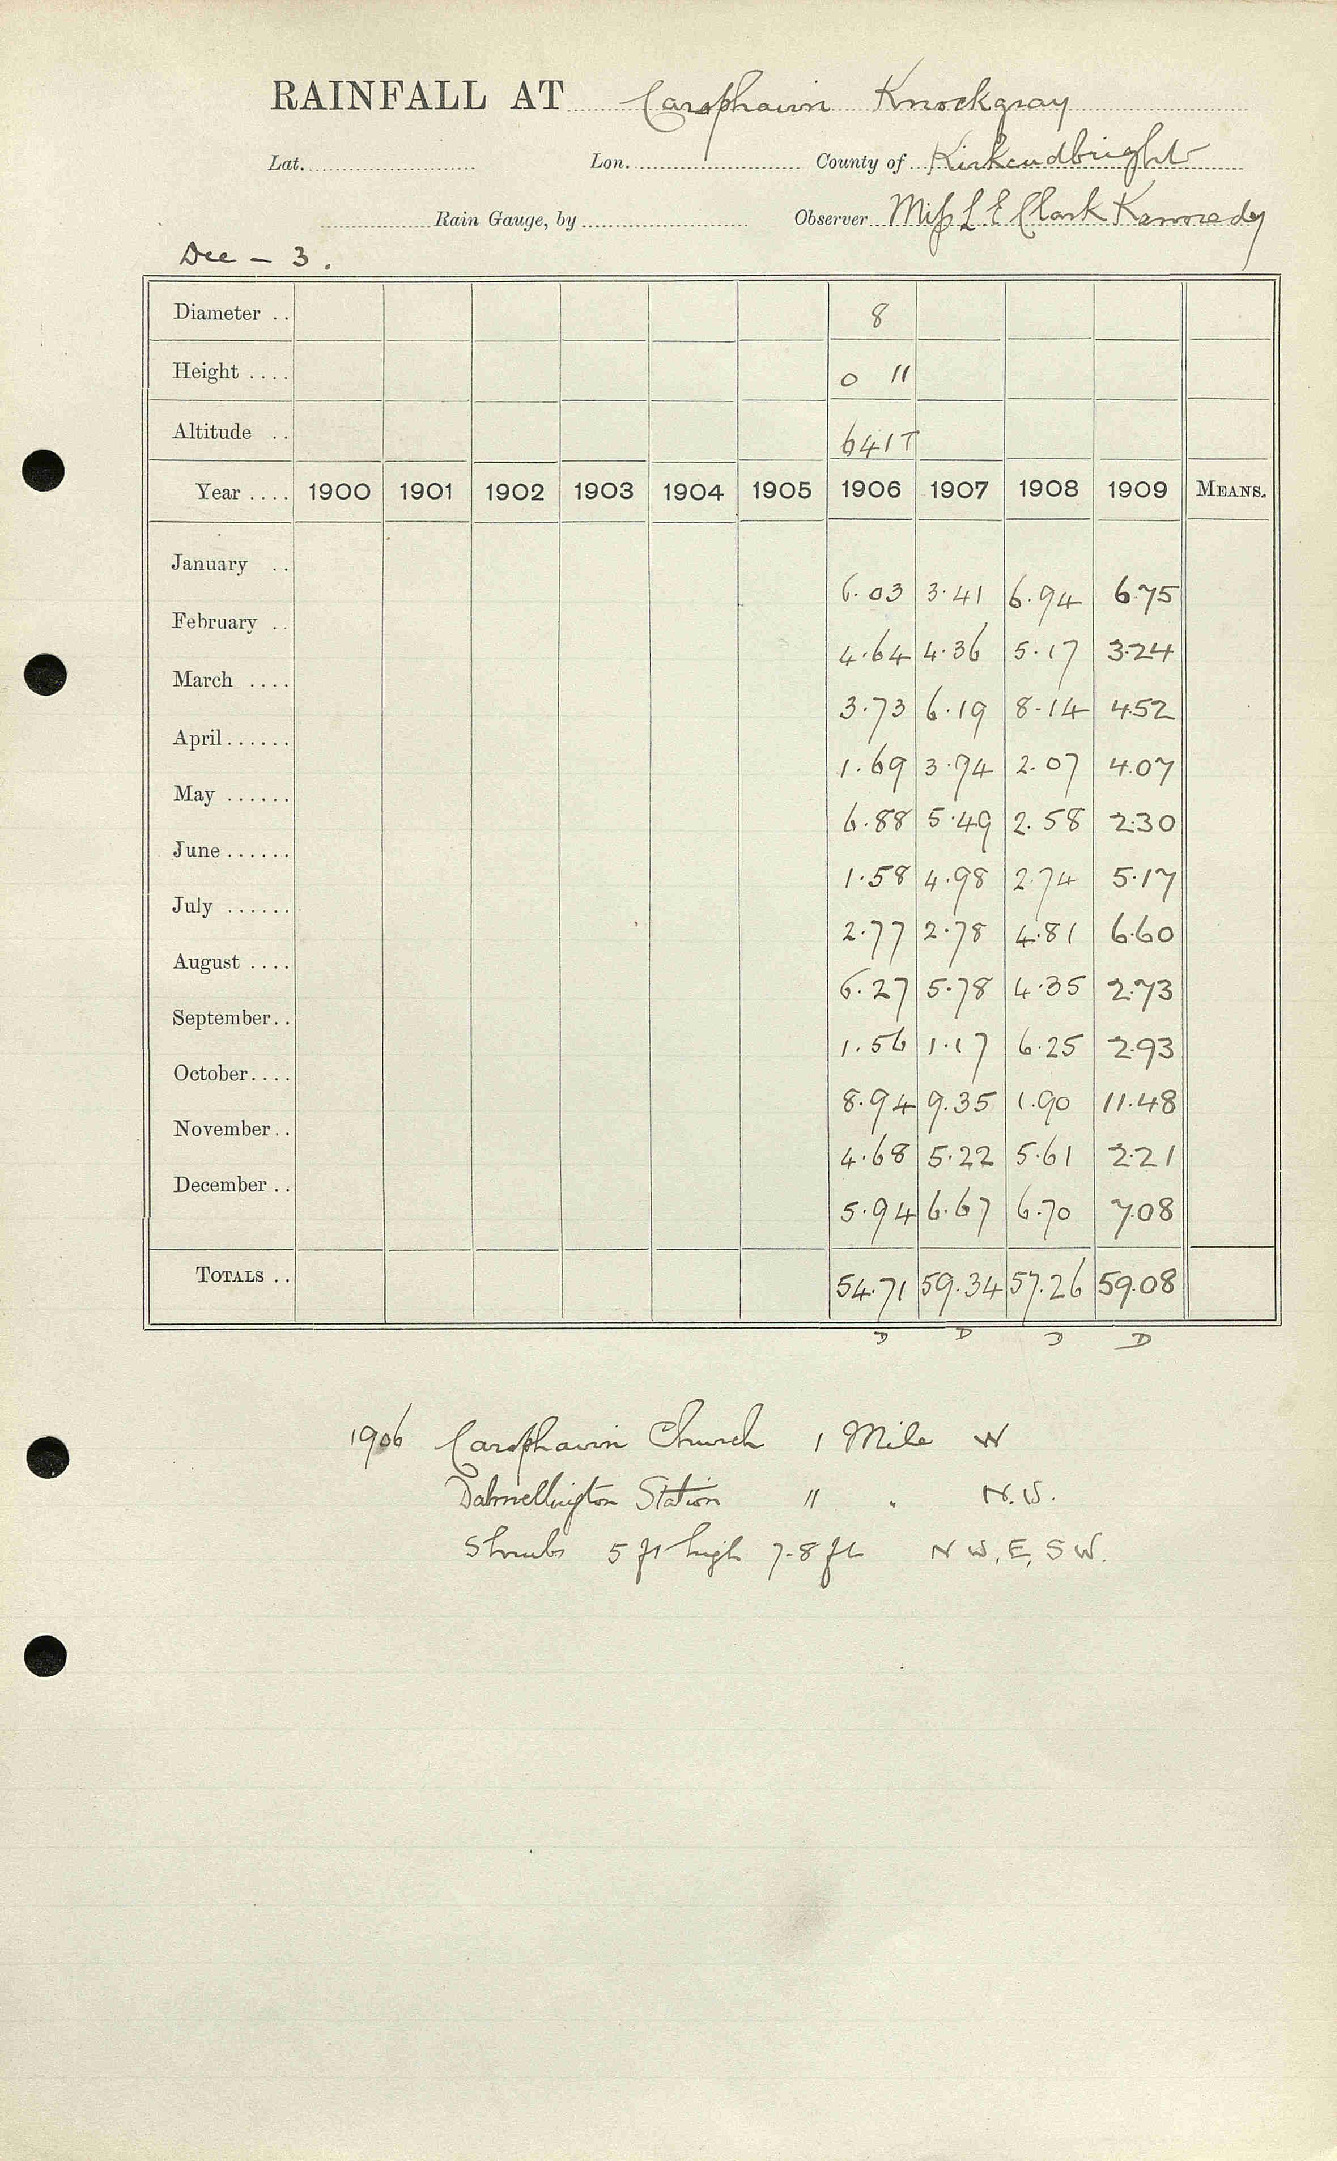 RAINFALL AT Carsphairn Knockgray
Lat. Lon. County of Kirkcudbright
Rain Gauge, by Observer Miss L E Clark Kennedy
Dee - 3.
Diameter .. 8
Height .... 0 11
Altitude .. 641T
Year .... 1900 1901 1902 1903 1904 1905 1906 1907 1908 1909 MEANS.
January .. 6.03 3.41 6.94 6.75
February .. 4.64 4.36 5.17 3.24
March .... 3.73 6.19 8.14 4.52
April ...... 1.69 3.94 2.07 4.07
May ...... 6.88 5.49 2.58 2.30
June ...... 1.58 4.98 2.74 5.17
July ...... 2.77 2.78 4.81 6.60
August .... 6.27 5.78 4.35 2.73
September.. 1.56 1.17 6.25 2.93
October.... 8.94 9.35 1.90 11.48
November.. 4.68 5.22 5.61 2.21
December .. 5.94 6.67 6.70 7.08
TOTALS .. 54.71 59.34 57.26 59.08
D D D D
1906 Carsphairn Church 1 Mile W
Dalmellington Station 11 " N.W.
Shrubs 5 ft high 7-8 ft NW, E, SW.